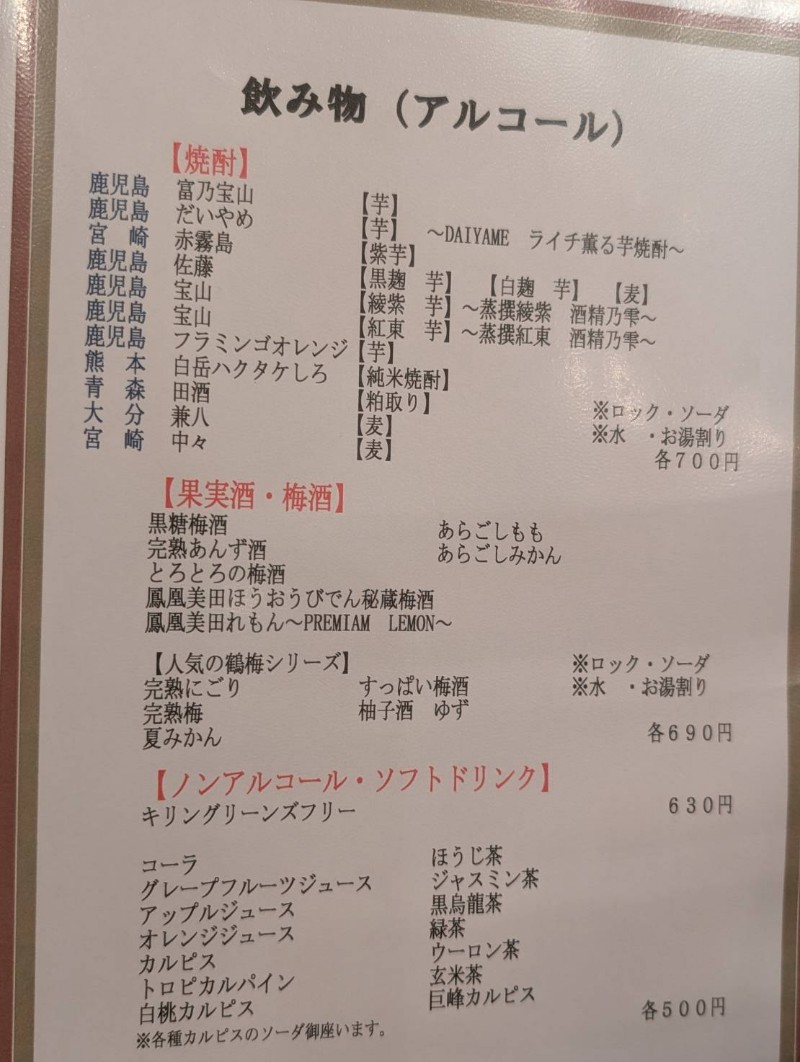 飲み物（アルコール）
【焼酎】
鹿児島 富乃宝山 【芋】
鹿児島 だいやめ 【芋】 ～DAIYAME ライチ薫る芋焼酎～
宮 崎 赤霧島 【紫芋】
鹿児島 佐藤 【黒麹 芋】 【白麹 芋】 【麦】
鹿児島 宝山 【綾紫 芋】～蒸撰綾紫 酒精乃雫～
鹿児島 宝山 【紅東 芋】～蒸撰紅東 酒精乃雫～
鹿児島 フラミンゴオレンジ【芋】
熊 本 白岳ハクタケしろ 【純米焼酎】
青 森 田酒 【粕取り】
大 分 兼八 【麦】 ※ロック・ソーダ
宮 崎 中々 【麦】 ※水 ・お湯割り
各７００円
【果実酒・梅酒】
黒糖梅酒 あらごしもも
完熟あんず酒 あらごしみかん
とろとろの梅酒
鳳凰美田ほうおうびでん秘蔵梅酒
鳳凰美田れもん～PREMIAM LEMON～
【人気の鶴梅シリーズ】 ※ロック・ソーダ
完熟にごり すっぱい梅酒 ※水 ・お湯割り
完熟梅 柚子酒 ゆず
夏みかん 各６９０円
【ノンアルコール・ソフトドリンク】
キリングリーンズフリー ６３０円
コーラ ほうじ茶
グレープフルーツジュース ジャスミン茶
アップルジュース 黒烏龍茶
オレンジジュース 緑茶
カルピス ウーロン茶
トロピカルパイン 玄米茶
白桃カルピス 巨峰カルピス 各５００円
※各種カルピスのソーダ御座います。